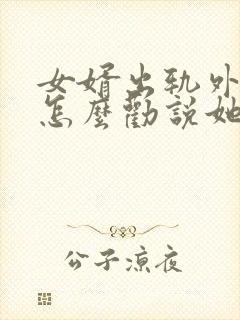 女婿出軌外
怎麼勸説她
公子涼夜